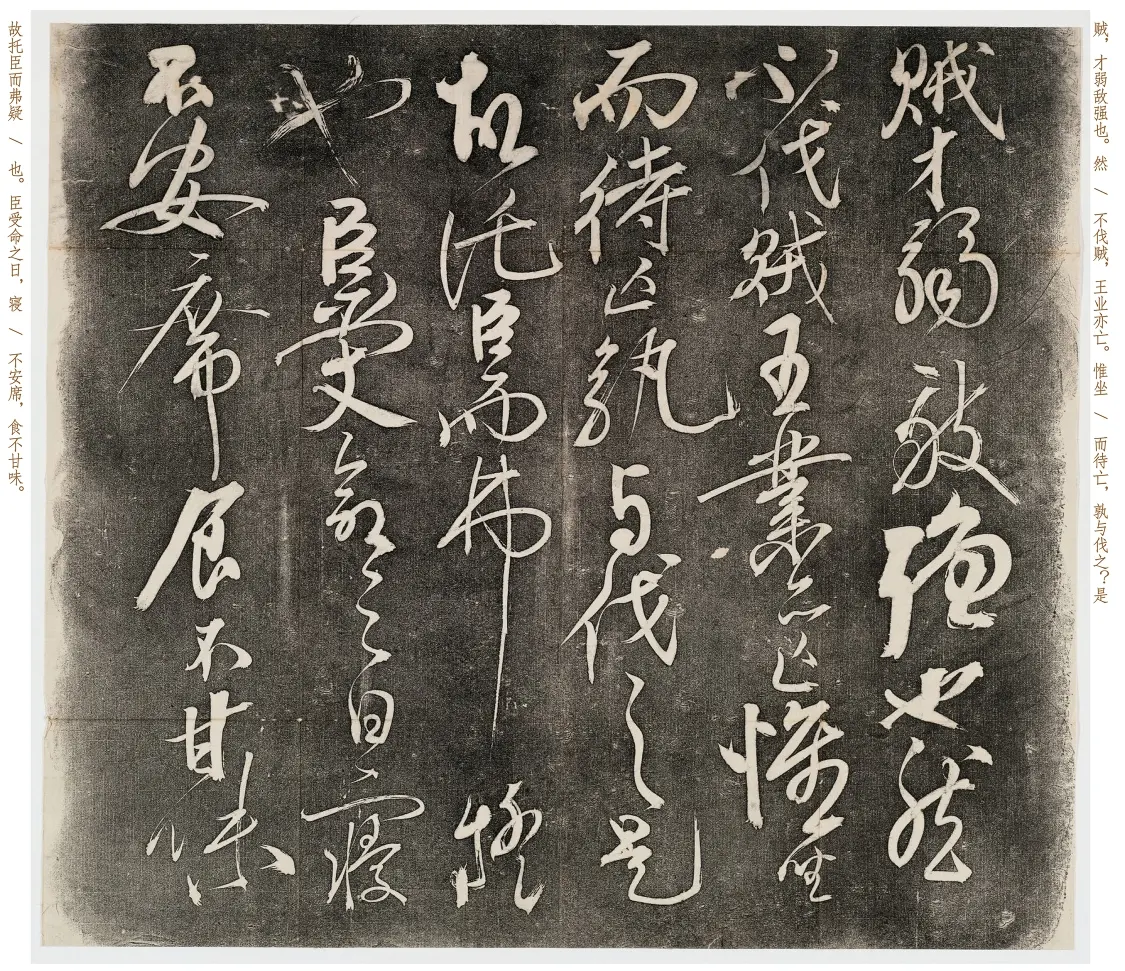 贼，才弱敌强也。然 / 不伐贼，王业亦亡。惟坐 / 而待亡，孰与伐之？是
賊才弱敵強也然
不伐賊王業亦亡惟坐
而待亡孰与伐之是
故託臣而弗疑
也臣受命之日寢
不安席食不甘味
故托臣而弗疑 / 也。臣受命之日，寝 / 不安席，食不甘味。